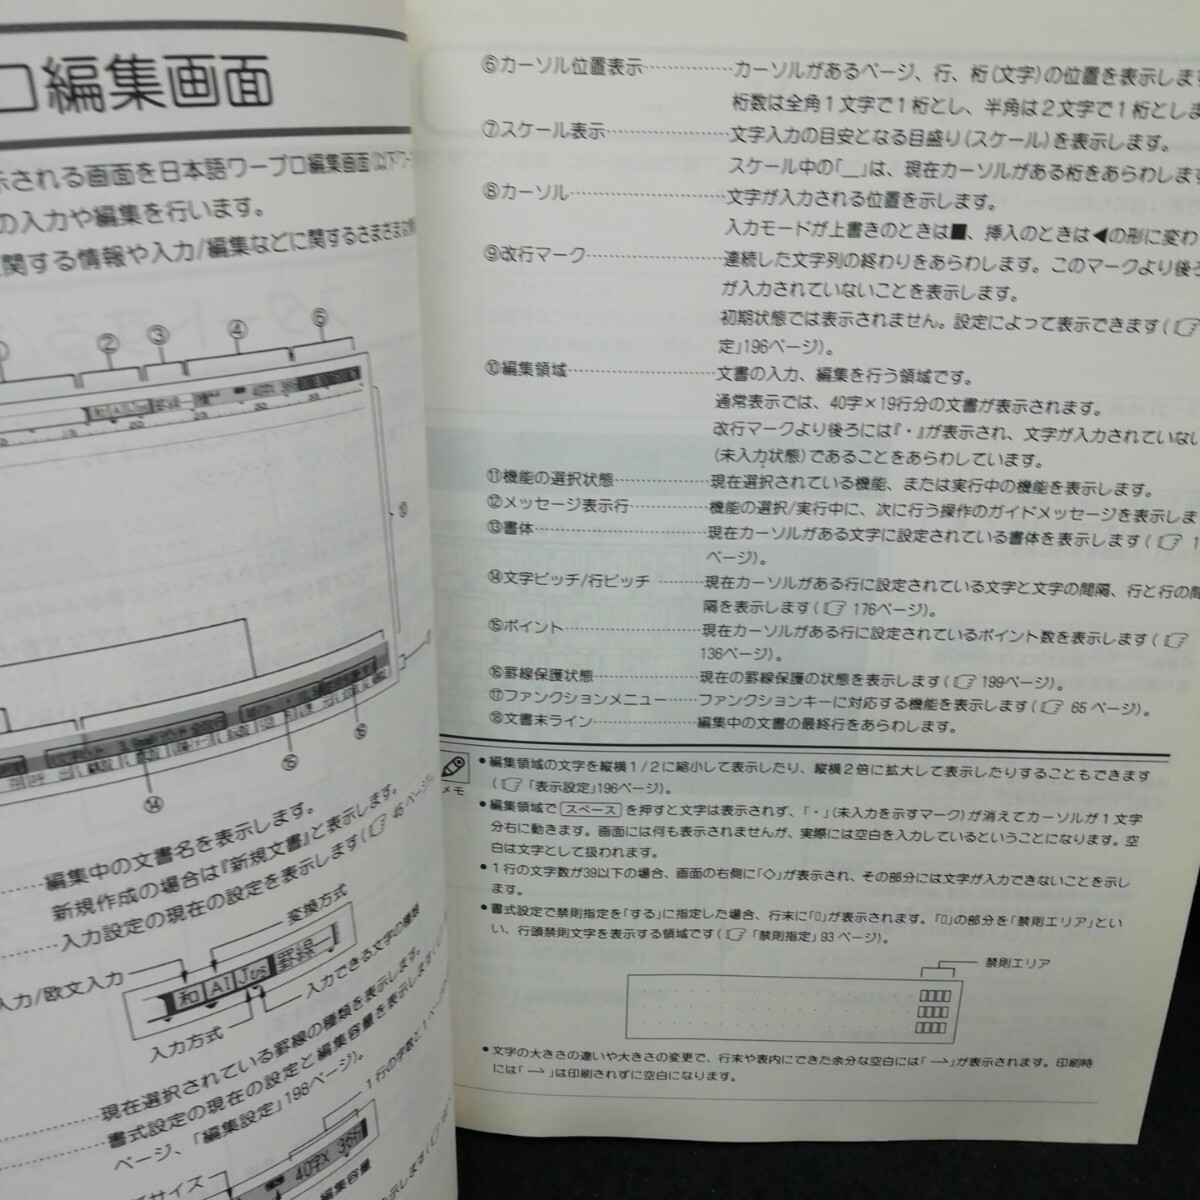 ロ編集画面
示される画面を日本語ワープロ編集画面(以下「ワー
の入力や編集を行います。
関する情報や入力/編集などに関するさまざまな情
② ③ ④ ⑤
⑩
⑭ ⑮ ⑯
編集中の文書名を表示します。
新規作成の場合は『新規文書』と表示します。
入力設定の現在の設定を表示します(☞ 45ページ)。
変換方式
入力/欧文入力
和 AI Jus 罫線
入力できる文字の種類
入力方式
現在選択されている罫線の種類を表示します。
書式設定の現在の設定と編集容量を表示します(
ページ、「編集設定」198ページ)。
1行の字数と1ページ
サイズ
40字X 36行
編集容量
⑥カーソル位置表示……………カーソルがあるページ、行、桁(文字)の位置を表示しま
桁数は全角1文字で1桁とし、半角は2文字で1桁としま
⑦スケール表示…………………文字入力の目安となる目盛り(スケール)を表示します。
スケール中の「＿」は、現在カーソルがある桁をあらわします
⑧カーソル………………………文字が入力される位置を示します。
入力モードが上書きのときは■、挿入のときは◀の形に変わ
⑨改行マーク……………………連続した文字列の終わりをあらわします。このマークより後ろ
が入力されていないことを表示します。
初期状態では表示されません。設定によって表示できます(☞
定」196ページ)。
⑩編集領域………………………文書の入力、編集を行う領域です。
通常表示では、40字×19行分の文書が表示されます。
改行マークより後ろには『・』が表示され、文字が入力されていない
(未入力状態)であることをあらわしています。
⑪機能の選択状態………………現在選択されている機能、または実行中の機能を表示します。
⑫メッセージ表示行……………機能の選択/実行中に、次に行う操作のガイドメッセージを表示しま
⑬書体……………………………現在カーソルがある文字に設定されている書体を表示します(☞ 1
ページ)。
⑭文字ピッチ/行ピッチ………現在カーソルがある行に設定されている文字と文字の間隔、行と行の間
隔を表示します(☞ 176ページ)。
⑮ポイント………………………現在カーソルがある行に設定されているポイント数を表示します(☞
136ページ)。
⑯罫線保護状態…………………現在の罫線保護の状態を表示します(☞ 199ページ)。
⑰ファンクションメニュー……ファンクションキーに対応する機能を表示します(☞ 65ページ)。
⑱文書末ライン…………………編集中の文書の最終行をあらわします。
メモ
●編集領域の文字を縦横1/2に縮小して表示したり、縦横2倍に拡大して表示したりすることもできます
(☞「表示設定」196ページ)。
●編集領域で スペース を押すと文字は表示されず、「・」(未入力を示すマーク)が消えてカーソルが1文字
分右に動きます。画面には何も表示されませんが、実際には空白を入力しているということになります。空
白は文字として扱われます。
●1行の文字数が39以下の場合、画面の右側に「◇」が表示され、その部分には文字が入力できないことを示し
ます。
●書式設定で禁則指定を「する」に指定した場合、行末に「▯」が表示されます。「▯」の部分を「禁則エリア」とい
い、行頭禁則文字を表示する領域です(☞「禁則指定」93ページ)。
禁則エリア
●文字の大きさの違いや大きさの変更で、行末や表内にできた余分な空白には「→」が表示されます。印刷時
には「→」は印刷されずに空白になります。